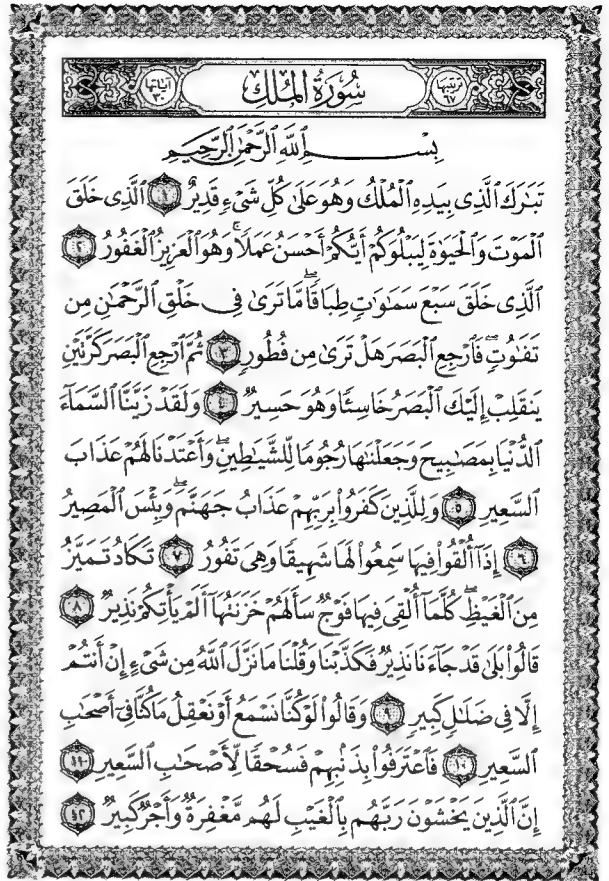 ترتيبها ٦٧ سُورَةُ المُلْكِ آياتها ٣٠
بِسْمِ اللَّهِ الرَّحْمَٰنِ الرَّحِيمِ
تَبَارَكَ الَّذِى بِيَدِهِ الْمُلْكُ وَهُوَ عَلَىٰ كُلِّ شَىْءٍ قَدِيرٌ ١ الَّذِى خَلَقَ
الْمَوْتَ وَالْحَيَوٰةَ لِيَبْلُوَكُمْ أَيُّكُمْ أَحْسَنُ عَمَلًا ۚ وَهُوَ الْعَزِيزُ الْغَفُورُ ٢
الَّذِى خَلَقَ سَبْعَ سَمَٰوَٰتٍ طِبَاقًا ۖ مَّا تَرَىٰ فِى خَلْقِ الرَّحْمَٰنِ مِن
تَفَٰوُتٍ ۖ فَارْجِعِ الْبَصَرَ هَلْ تَرَىٰ مِن فُطُورٍ ٣ ثُمَّ ارْجِعِ الْبَصَرَ كَرَّتَيْنِ
يَنقَلِبْ إِلَيْكَ الْبَصَرُ خَاسِئًا وَهُوَ حَسِيرٌ ٤ وَلَقَدْ زَيَّنَّا السَّمَآءَ
الدُّنْيَا بِمَصَٰبِيحَ وَجَعَلْنَٰهَا رُجُومًا لِّلشَّيَٰطِينِ ۖ وَأَعْتَدْنَا لَهُمْ عَذَابَ
السَّعِيرِ ٥ وَلِلَّذِينَ كَفَرُوا۟ بِرَبِّهِمْ عَذَابُ جَهَنَّمَ ۖ وَبِئْسَ الْمَصِيرُ
٦ إِذَآ أُلْقُوا۟ فِيهَا سَمِعُوا۟ لَهَا شَهِيقًا وَهِىَ تَفُورُ ٧ تَكَادُ تَمَيَّزُ
مِنَ الْغَيْظِ ۖ كُلَّمَآ أُلْقِىَ فِيهَا فَوْجٌ سَأَلَهُمْ خَزَنَتُهَآ أَلَمْ يَأْتِكُمْ نَذِيرٌ ٨
قَالُوا۟ بَلَىٰ قَدْ جَآءَنَا نَذِيرٌ فَكَذَّبْنَا وَقُلْنَا مَا نَزَّلَ اللَّهُ مِن شَىْءٍ إِنْ أَنتُمْ
إِلَّا فِى ضَلَٰلٍ كَبِيرٍ ٩ وَقَالُوا۟ لَوْ كُنَّا نَسْمَعُ أَوْ نَعْقِلُ مَا كُنَّا فِىٓ أَصْحَٰبِ
السَّعِيرِ ١٠ فَاعْتَرَفُوا۟ بِذَنۢبِهِمْ فَسُحْقًا لِّأَصْحَٰبِ السَّعِيرِ ١١
إِنَّ الَّذِينَ يَخْشَوْنَ رَبَّهُم بِالْغَيْبِ لَهُم مَّغْفِرَةٌ وَأَجْرٌ كَبِيرٌ ١٢